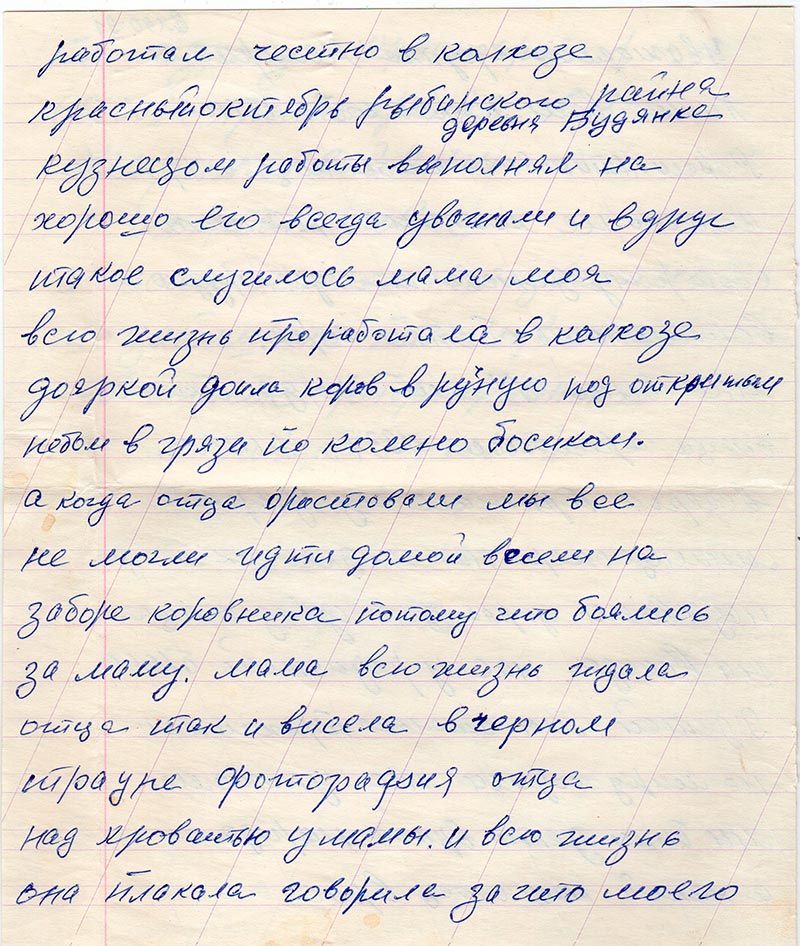 работал честно в колхозе
красныйоктябрь рыбинского район
деревня Будянка
кузнецом работы выполнял на
хорошо его всегда уважали и вдруг
такое случилось мама моя
всю жизнь проработала в колхозе
дояркой доила коров в руную под открытым
небом в грязи по колено босиком.
а когда отца орастовали мы все
не могли идти домой весели на
заборе коровника потому что боялись
за маму. мама всю жизнь ждала
отца так и висела в черном
трауре фотография отца
над кроватью у мамы. и всю жизнь
она плакала говорила за что моего